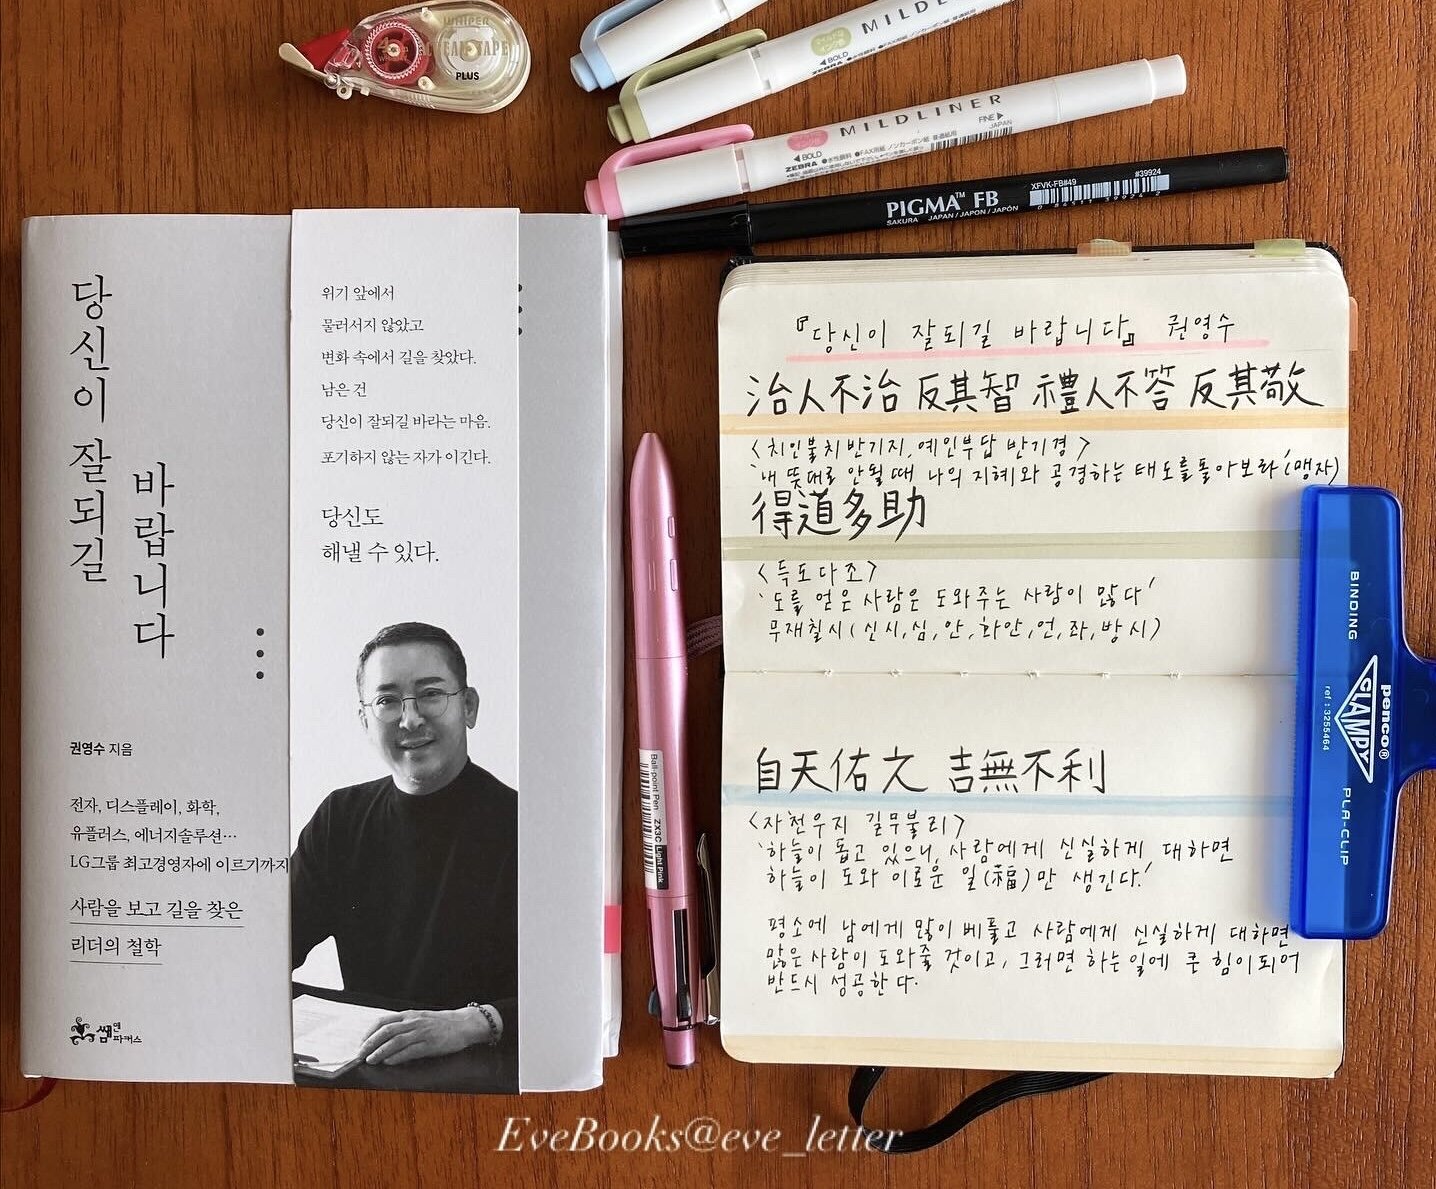 WHIPER
CLEAN TAPE
PLUS
MILDLINER
BOLD
ZEBRA
MILDLINER
FINE
JAPAN
BOLD
ZEBRA ●水性顔料 ●FAX用紙 ノンカーボン紙 普通紙用
PIGMA™ FB
SAKURA JAPAN / JAPON / JAPÓN
XFVK-FB#49
#39924
0 84511 39924 2
당신이 잘되길
바랍니다
권영수 지음
전자, 디스플레이, 화학,
유플러스, 에너지솔루션…
LG그룹 최고경영자에 이르기까지
사람을 보고 길을 찾은
리더의 철학
쌤앤파커스
위기 앞에서
물러서지 않았고
변화 속에서 길을 찾았다.
남은 건
당신이 잘되길 바라는 마음.
포기하지 않는 자가 이긴다.
당신도
해낼 수 있다.
Ball-point Pen ZX3C Light Pink
『당신이 잘되길 바랍니다』 권영수
治人不治 反其智 禮人不答 反其敬
<치인불치반기지, 예인부답 반기경>
'내 뜻대로 안될 때 나의 지혜와 공경하는 태도를 돌아보라'(맹자)
得道多助
<득도다조>
'도를 얻은 사람은 도와주는 사람이 많다'
무재칠시(신시,심,안,화안,언,좌,방시)
自天佑之 吉無不利
<자천우지 길무불리>
'하늘이 돕고 있으니, 사람에게 신실하게 대하면
하늘이 도와 이로운 일(福)만 생긴다.'
평소에 남에게 많이 베풀고 사람에게 신실하게 대하면
많은 사람이 도와줄 것이고, 그러면 하는 일에 큰 힘이 되어
반드시 성공한다.
BINDING
penco®
CLAMPY
ref : 3255464
PLA-CLIP
EveBooks@eve_letter